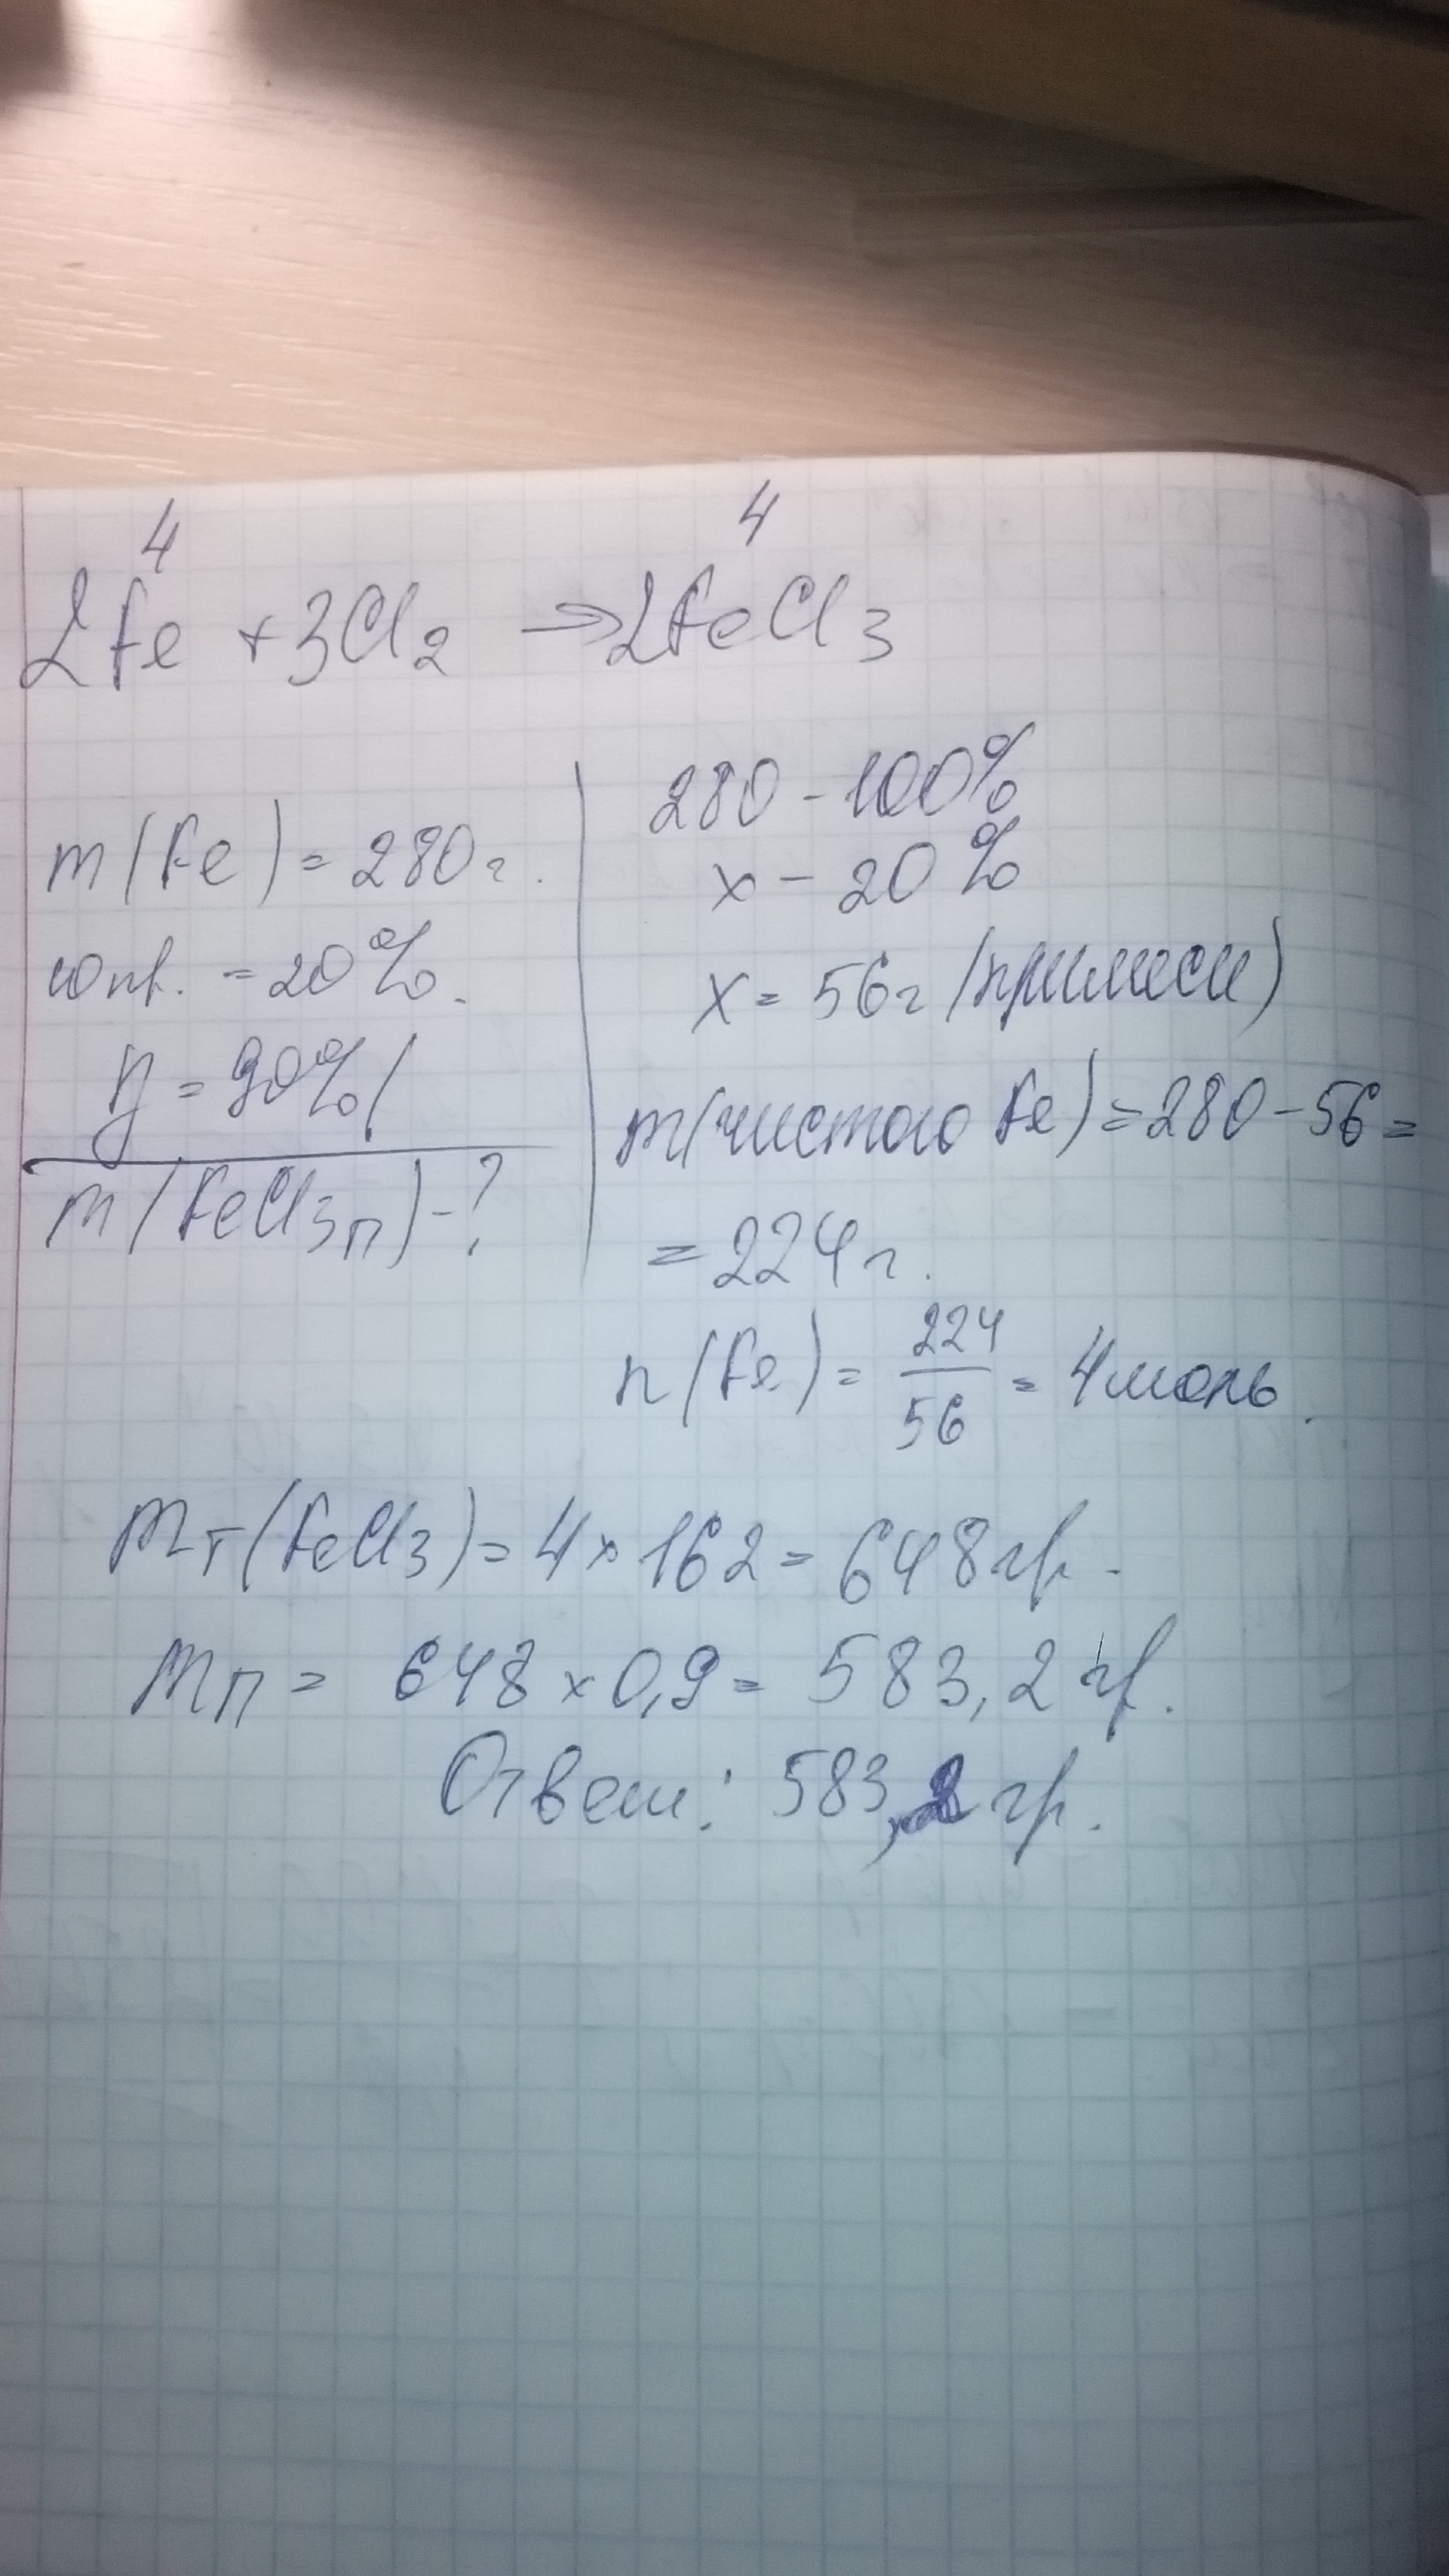 4 4
2Fe + 3Cl2 → 2FeCl3
m(Fe) = 280г.
сопр. = 20%.
η = 90%
m(FeCl3п) - ?
280 - 100%
x - 20%
x = 56г (примеси)
m(чистого Fe) = 280 - 56 =
= 224г.
n(Fe) = 224/56 = 4моль.
mт(FeCl3) = 4 × 162 = 648гр.
mп = 648 × 0,9 = 583,2 гр.
Ответ: 583,2 гр.